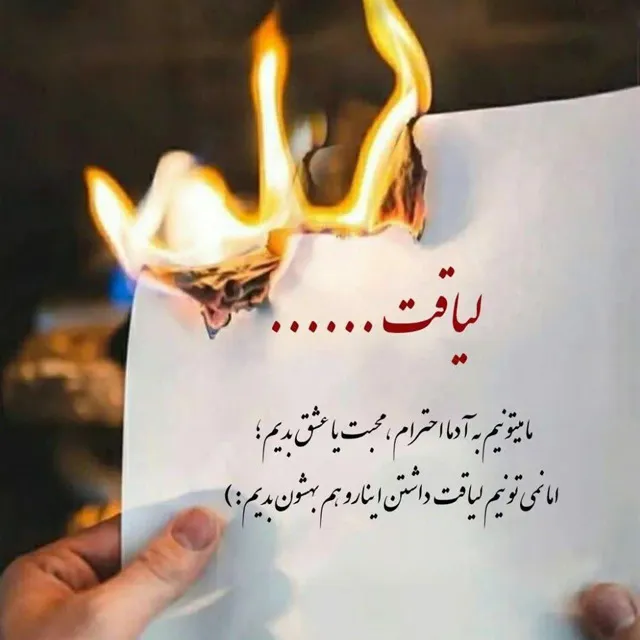 لیاقت......
ما میتونیم به آدما احترام ، محبت یا عشق بدیم ؛
اما نمی تونیم لیاقت داشتن اینارو هم بهشون بدیم : )